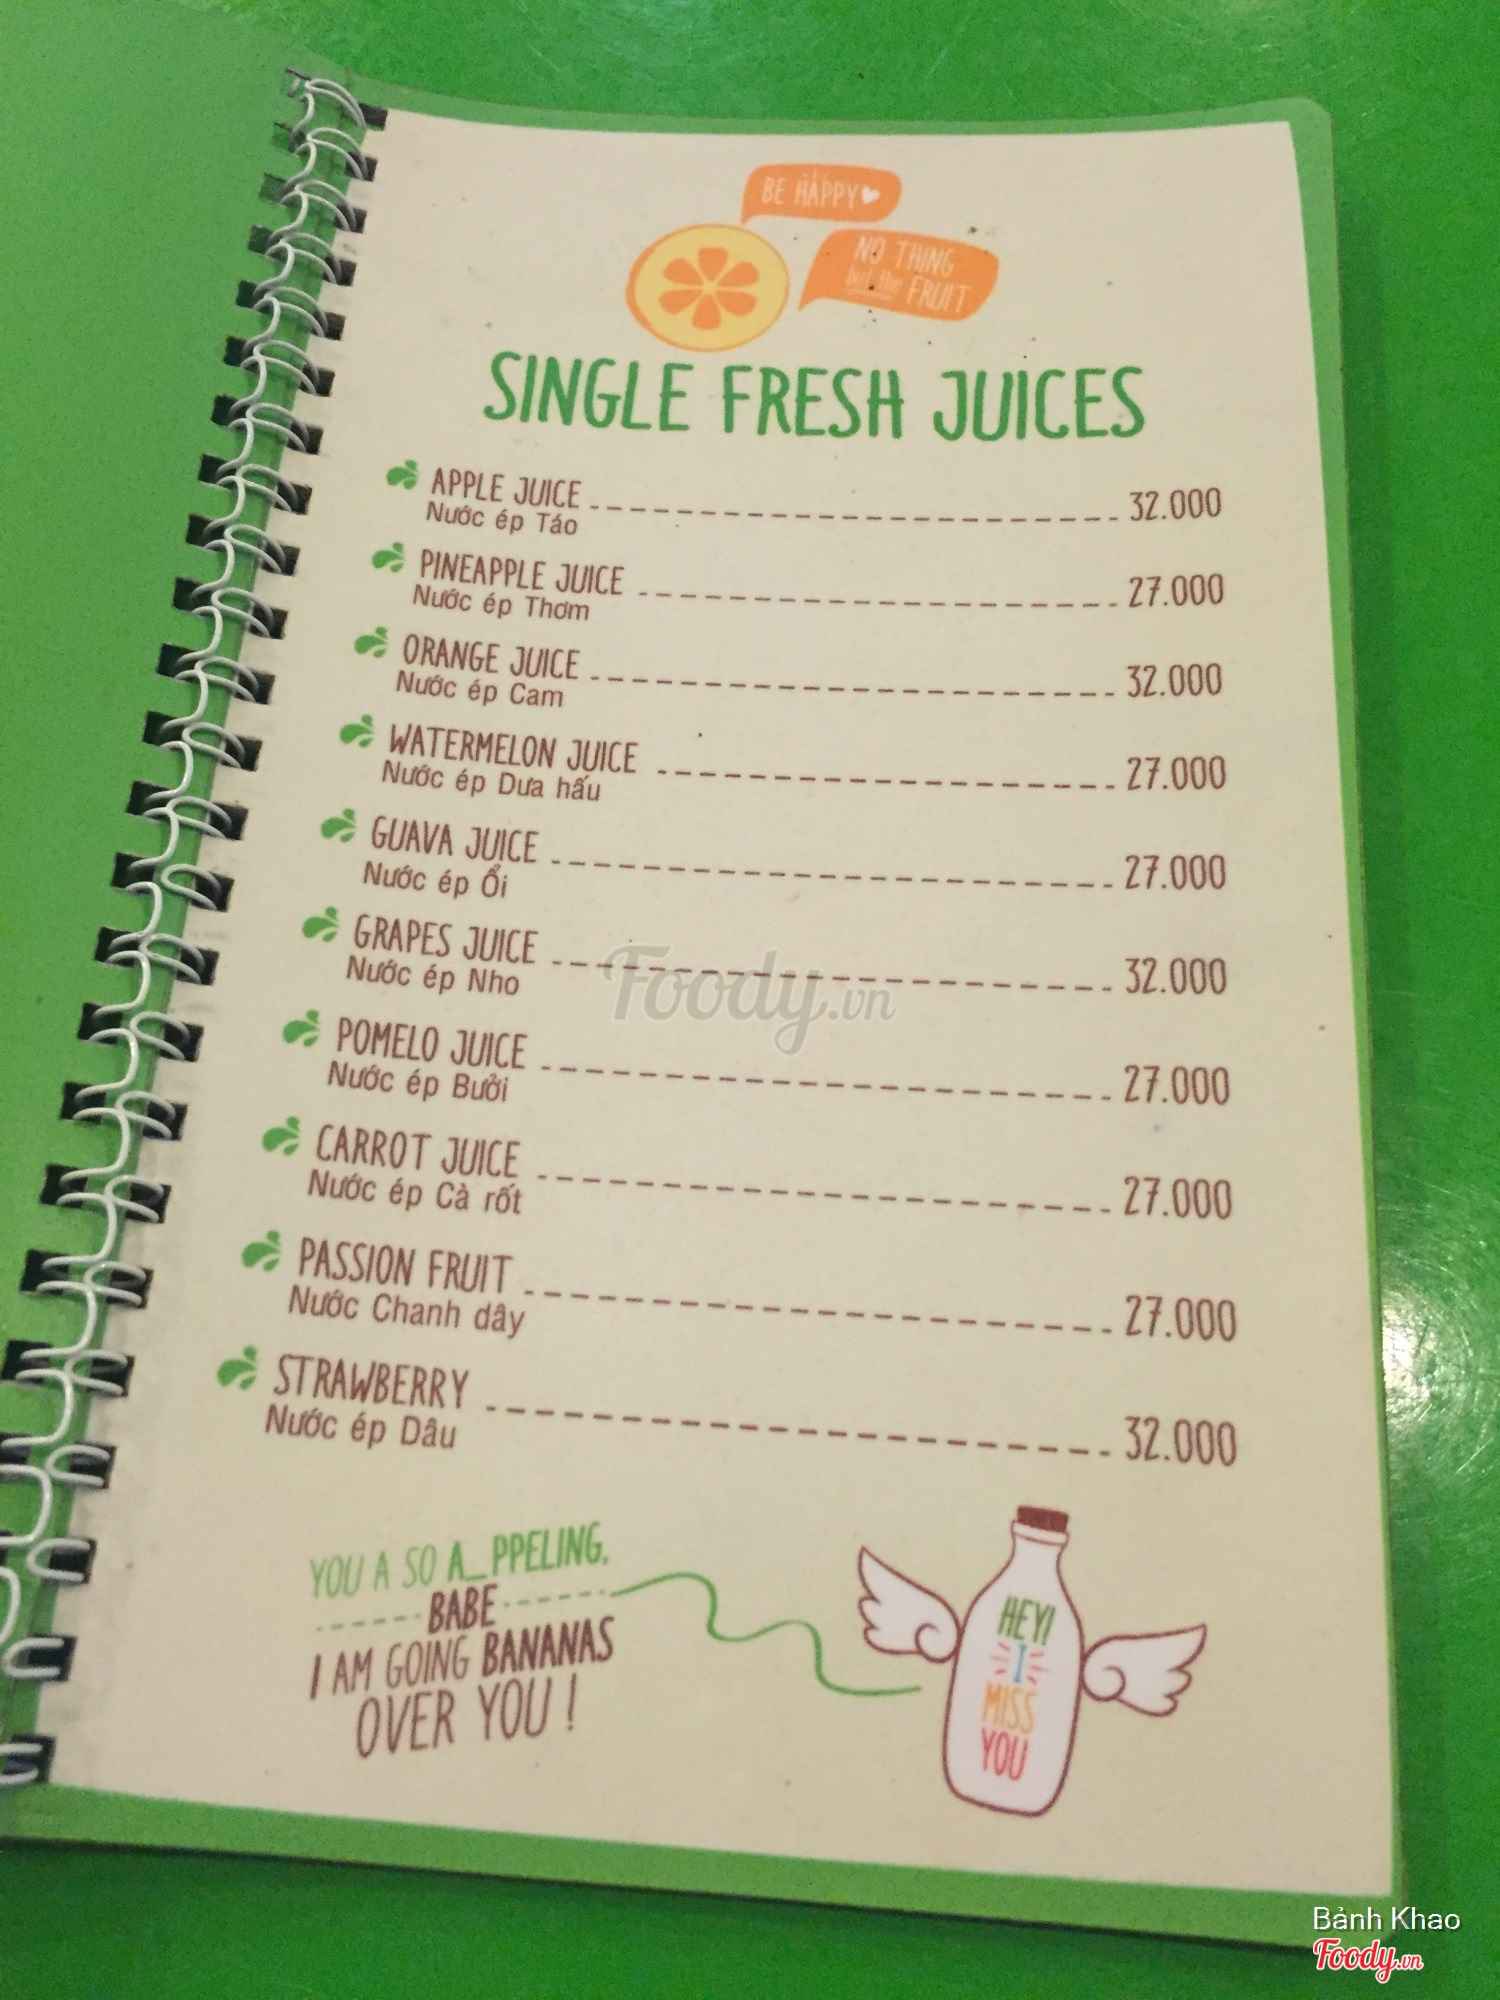 BE HAPPY
NO THING
but the FRUIT
SINGLE FRESH JUICES
APPLE JUICE 32.000
Nước ép Táo
PINEAPPLE JUICE 27.000
Nước ép Thơm
ORANGE JUICE 32.000
Nước ép Cam
WATERMELON JUICE 27.000
Nước ép Dưa hấu
GUAVA JUICE 27.000
Nước ép Ổi
GRAPES JUICE 32.000
Nước ép Nho
Foody.vn
POMELO JUICE 27.000
Nước ép Bưởi
CARROT JUICE 27.000
Nước ép Cà rốt
PASSION FRUIT 27.000
Nước Chanh dây
STRAWBERRY 32.000
Nước ép Dâu
YOU A SO A_PPELING.
BABE
I AM GOING BANANAS
OVER YOU !
HEY!
I
MISS
YOU
Bảnh Khao
Foody.vn